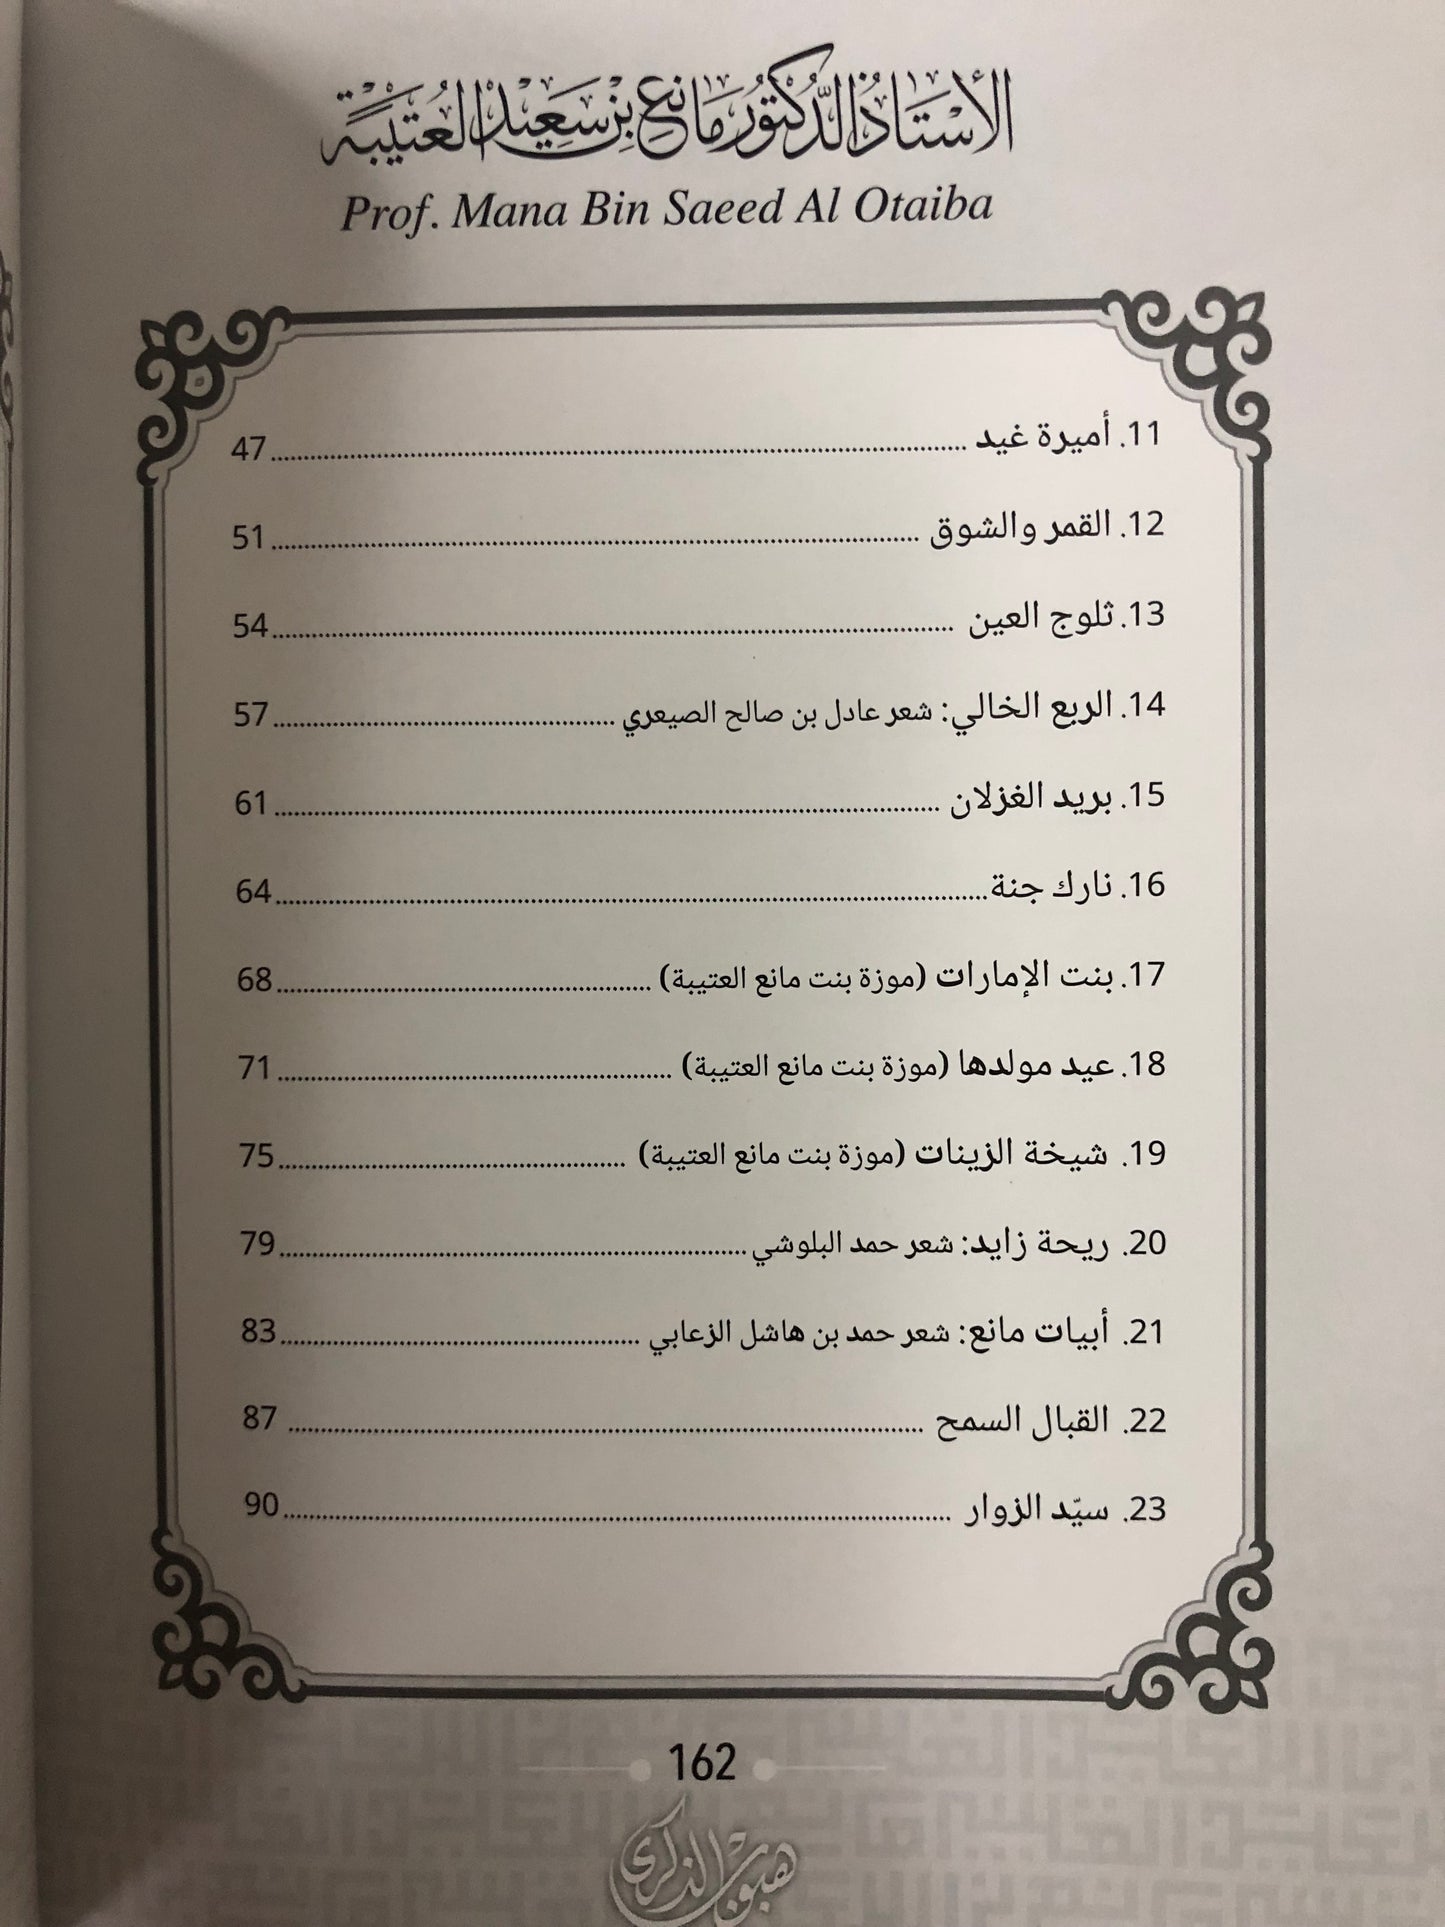 الأستاذ الدكتور مانع بن سعيد العتيبة
Prof. Mana Bin Saeed Al Otaiba
11. أميرة غيد ........ 47
12. القمر والشوق ........ 51
13. ثلوج العين ........ 54
14. الربع الخالي: شعر عادل بن صالح الصيعري ........ 57
15. بريد الغزلان ........ 61
16. نارك جنة ........ 64
17. بنت الإمارات (موزة بنت مانع العتيبة) ........ 68
18. عيد مولدها (موزة بنت مانع العتيبة) ........ 71
19. شيخة الزينات (موزة بنت مانع العتيبة) ........ 75
20. ريحة زايد: شعر حمد البلوشي ........ 79
21. أبيات مانع: شعر حمد بن هاشل الزعابي ........ 83
22. القبال السمح ........ 87
23. سيّد الزوار ........ 90
162
هبوب الذكرى